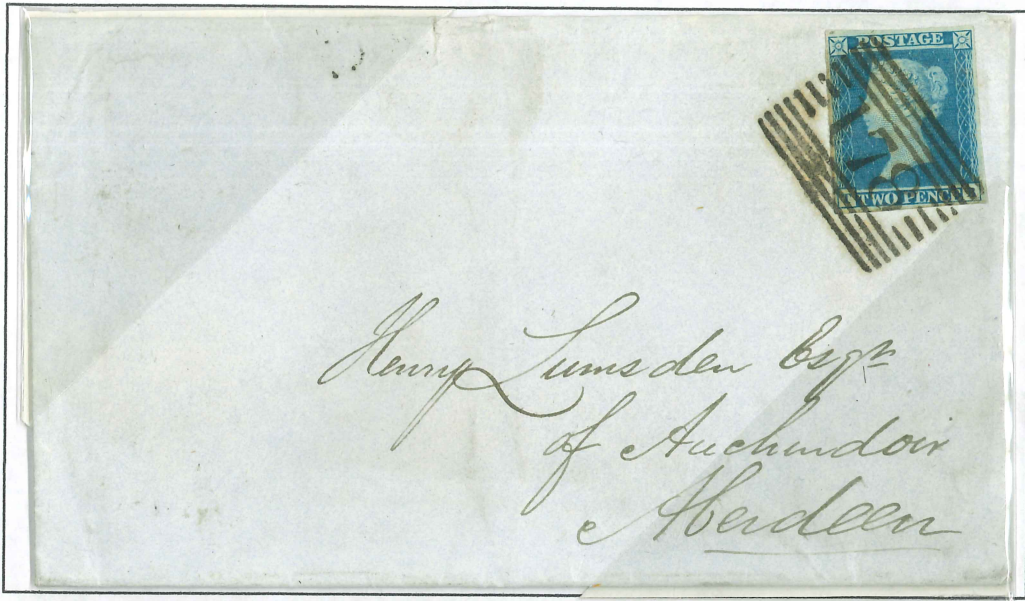 POSTAGE
TWO PENCE
Henry Lumsden Esqr
of Auchindoir
Aberdeen